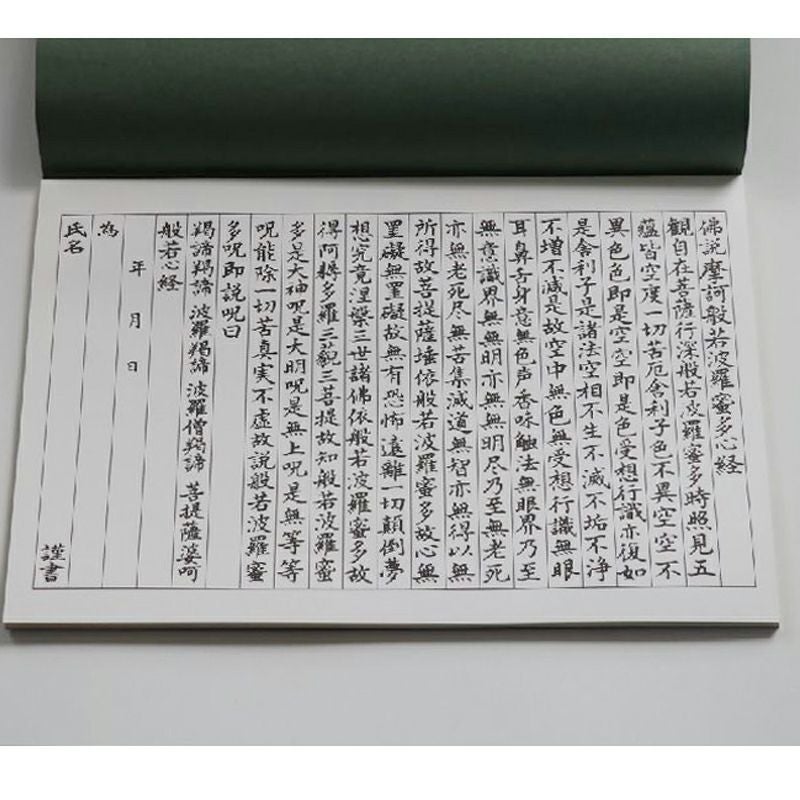 佛説摩訶般若波羅蜜多心経
観自在菩薩行深般若波羅蜜多時照見五
蘊皆空度一切苦厄舎利子色不異空空不
異色色即是空空即是色受想行識亦復如
是舎利子是諸法空相不生不滅不垢不浄
不増不減是故空中無色無受想行識無眼
耳鼻舌身意無色声香味触法無眼界乃至
無意識界無無明亦無無明尽乃至無老死
亦無老死尽無苦集滅道無智亦無得以無
所得故菩提薩埵依般若波羅蜜多故心無
罣礙無罣礙故無有恐怖遠離一切顛倒夢
想究竟涅槃三世諸佛依般若波羅蜜多故
得阿耨多羅三藐三菩提故知般若波羅蜜
多是大神呪是大明呪是無上呪是無等等
呪能除一切苦真実不虚故説般若波羅蜜
多呪即説呪曰
羯諦羯諦 波羅羯諦 波羅僧羯諦 菩提薩婆呵
般若心経
年 月 日
為
氏名 謹書